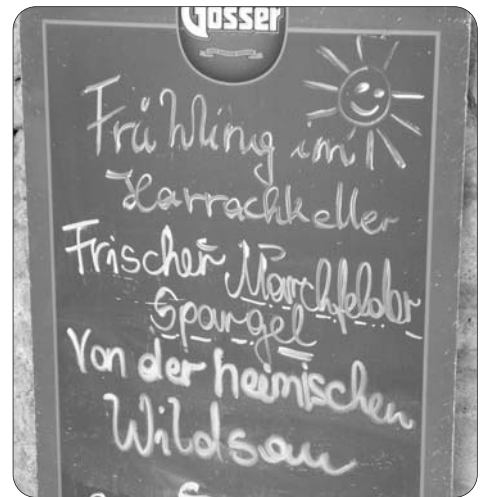 Gösser
Frühling im
Harrachkeller
Frischer Marchfelder
Spargel
Von der heimischen
Wildsau